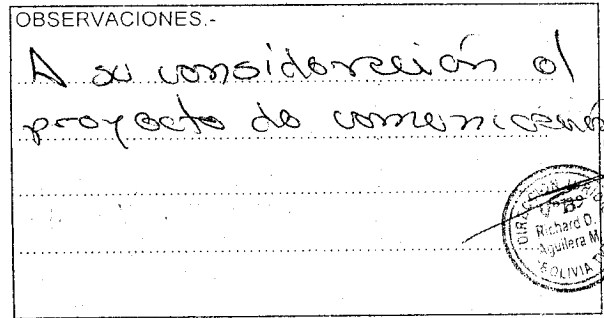 OBSERVACIONES.-
A su consideración el
proyecto de comunicación
DIRECCION
Vº Bº
Richard D.
Aguilera M.
BOLIVIA TV